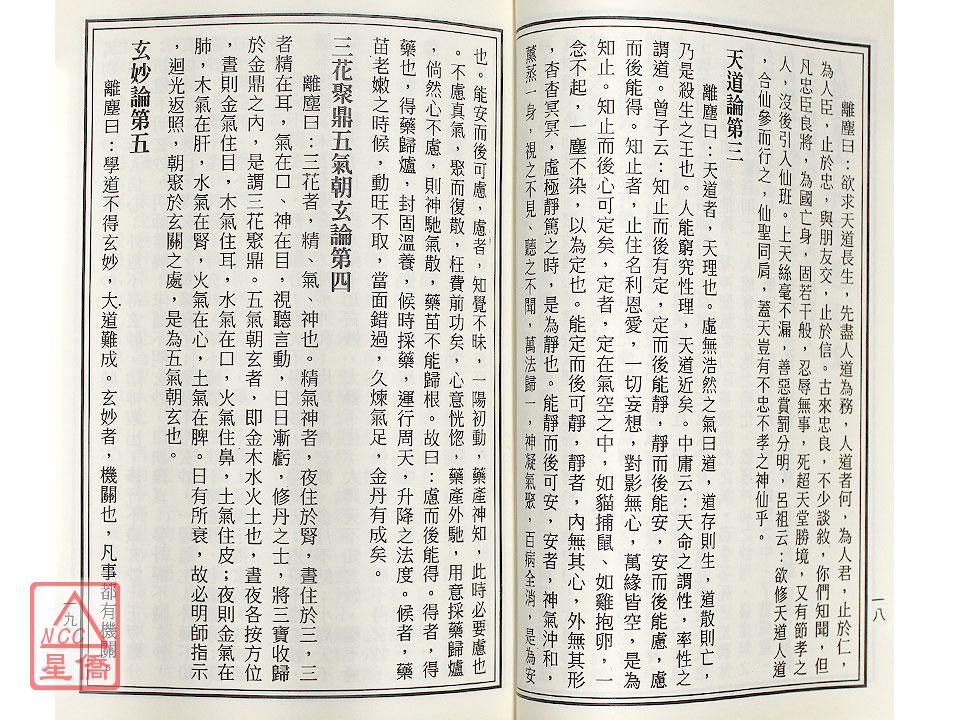 離塵曰：欲求天道長生，先盡人道為務，人道者何，為人君，止於仁，
為人臣，止於忠，與朋友交，止於信。古來忠良，不少談敘，你們知聞，但
凡忠臣良將，為國亡身，固若干般，忍辱無事，死超天堂勝境，又有節孝之
人，沒後引入仙班。上天絲毫不漏，善惡賞罰分明，呂祖云：欲修天道人道
，合仙參而行之，仙聖同肩，蓋天豈有不忠不孝之神仙乎。
天道論第三
離塵曰：天道者，天理也。虛無浩然之氣曰道，道存則生，道散則亡，
乃是殺生之王也。人能窮究性理，天道近矣。中庸云：天命之謂性，率性之
謂道。曾子云：知止而後有定，定而後能靜，靜而後能安，安而後能慮，慮
而後能得。知止者，止住名利恩愛，一切妄想，對影無心，萬緣皆空，是為
知止。知止而後心可定矣，定者，定在氣空之中，如貓捕鼠、如雞抱卵，一
念不起，一塵不染，以為定也。能定而後可靜，靜者，內無其心，外無其形
，杳杳冥冥，虛極靜篤之時，是為靜也。能靜而後可安，安者，神氣沖和，
薰蒸一身，視之不見、聽之不聞，萬法歸一，神凝氣聚，百病全消，是為安
一八
也。能安而後可慮，慮者，知覺不昧，一陽初動，藥產神知，此時必要慮也
。不慮真氣，聚而復散，枉費前功矣，心意恍惚，藥產外馳，用意採藥歸爐
，倘然心不慮，則神馳氣散，藥苗不能歸根。故曰：慮而後能得。得者，得
藥也，得藥歸爐，封固溫養，候時採藥，運行周天，升降之法度。候者，藥
苗老嫩之時候，動旺不取，當面錯過，久煉氣足，金丹有成矣。
三花聚鼎五氣朝玄論第四
離塵曰：三花者，精、氣、神也。精氣神者，夜住於腎，晝住於三，三
者精在耳，氣在口、神在目，視聽言動，日日漸虧，修丹之士，將三寶收歸
於金鼎之內，是謂三花聚鼎。五氣朝玄者，即金木水火土也，晝夜各按方位
，晝則金氣住目，木氣住耳，水氣在口，火氣住鼻，土氣住皮；夜則金氣在
肺，木氣在肝，水氣在腎，火氣在心，土氣在脾。日有所衰，故必明師指示
，迴光返照，朝聚於玄關之處，是為五氣朝玄也。
玄妙論第五
離塵曰：學道不得玄妙，大道難成。玄妙者，機關也，凡事都有機關
九
NCC
星僑